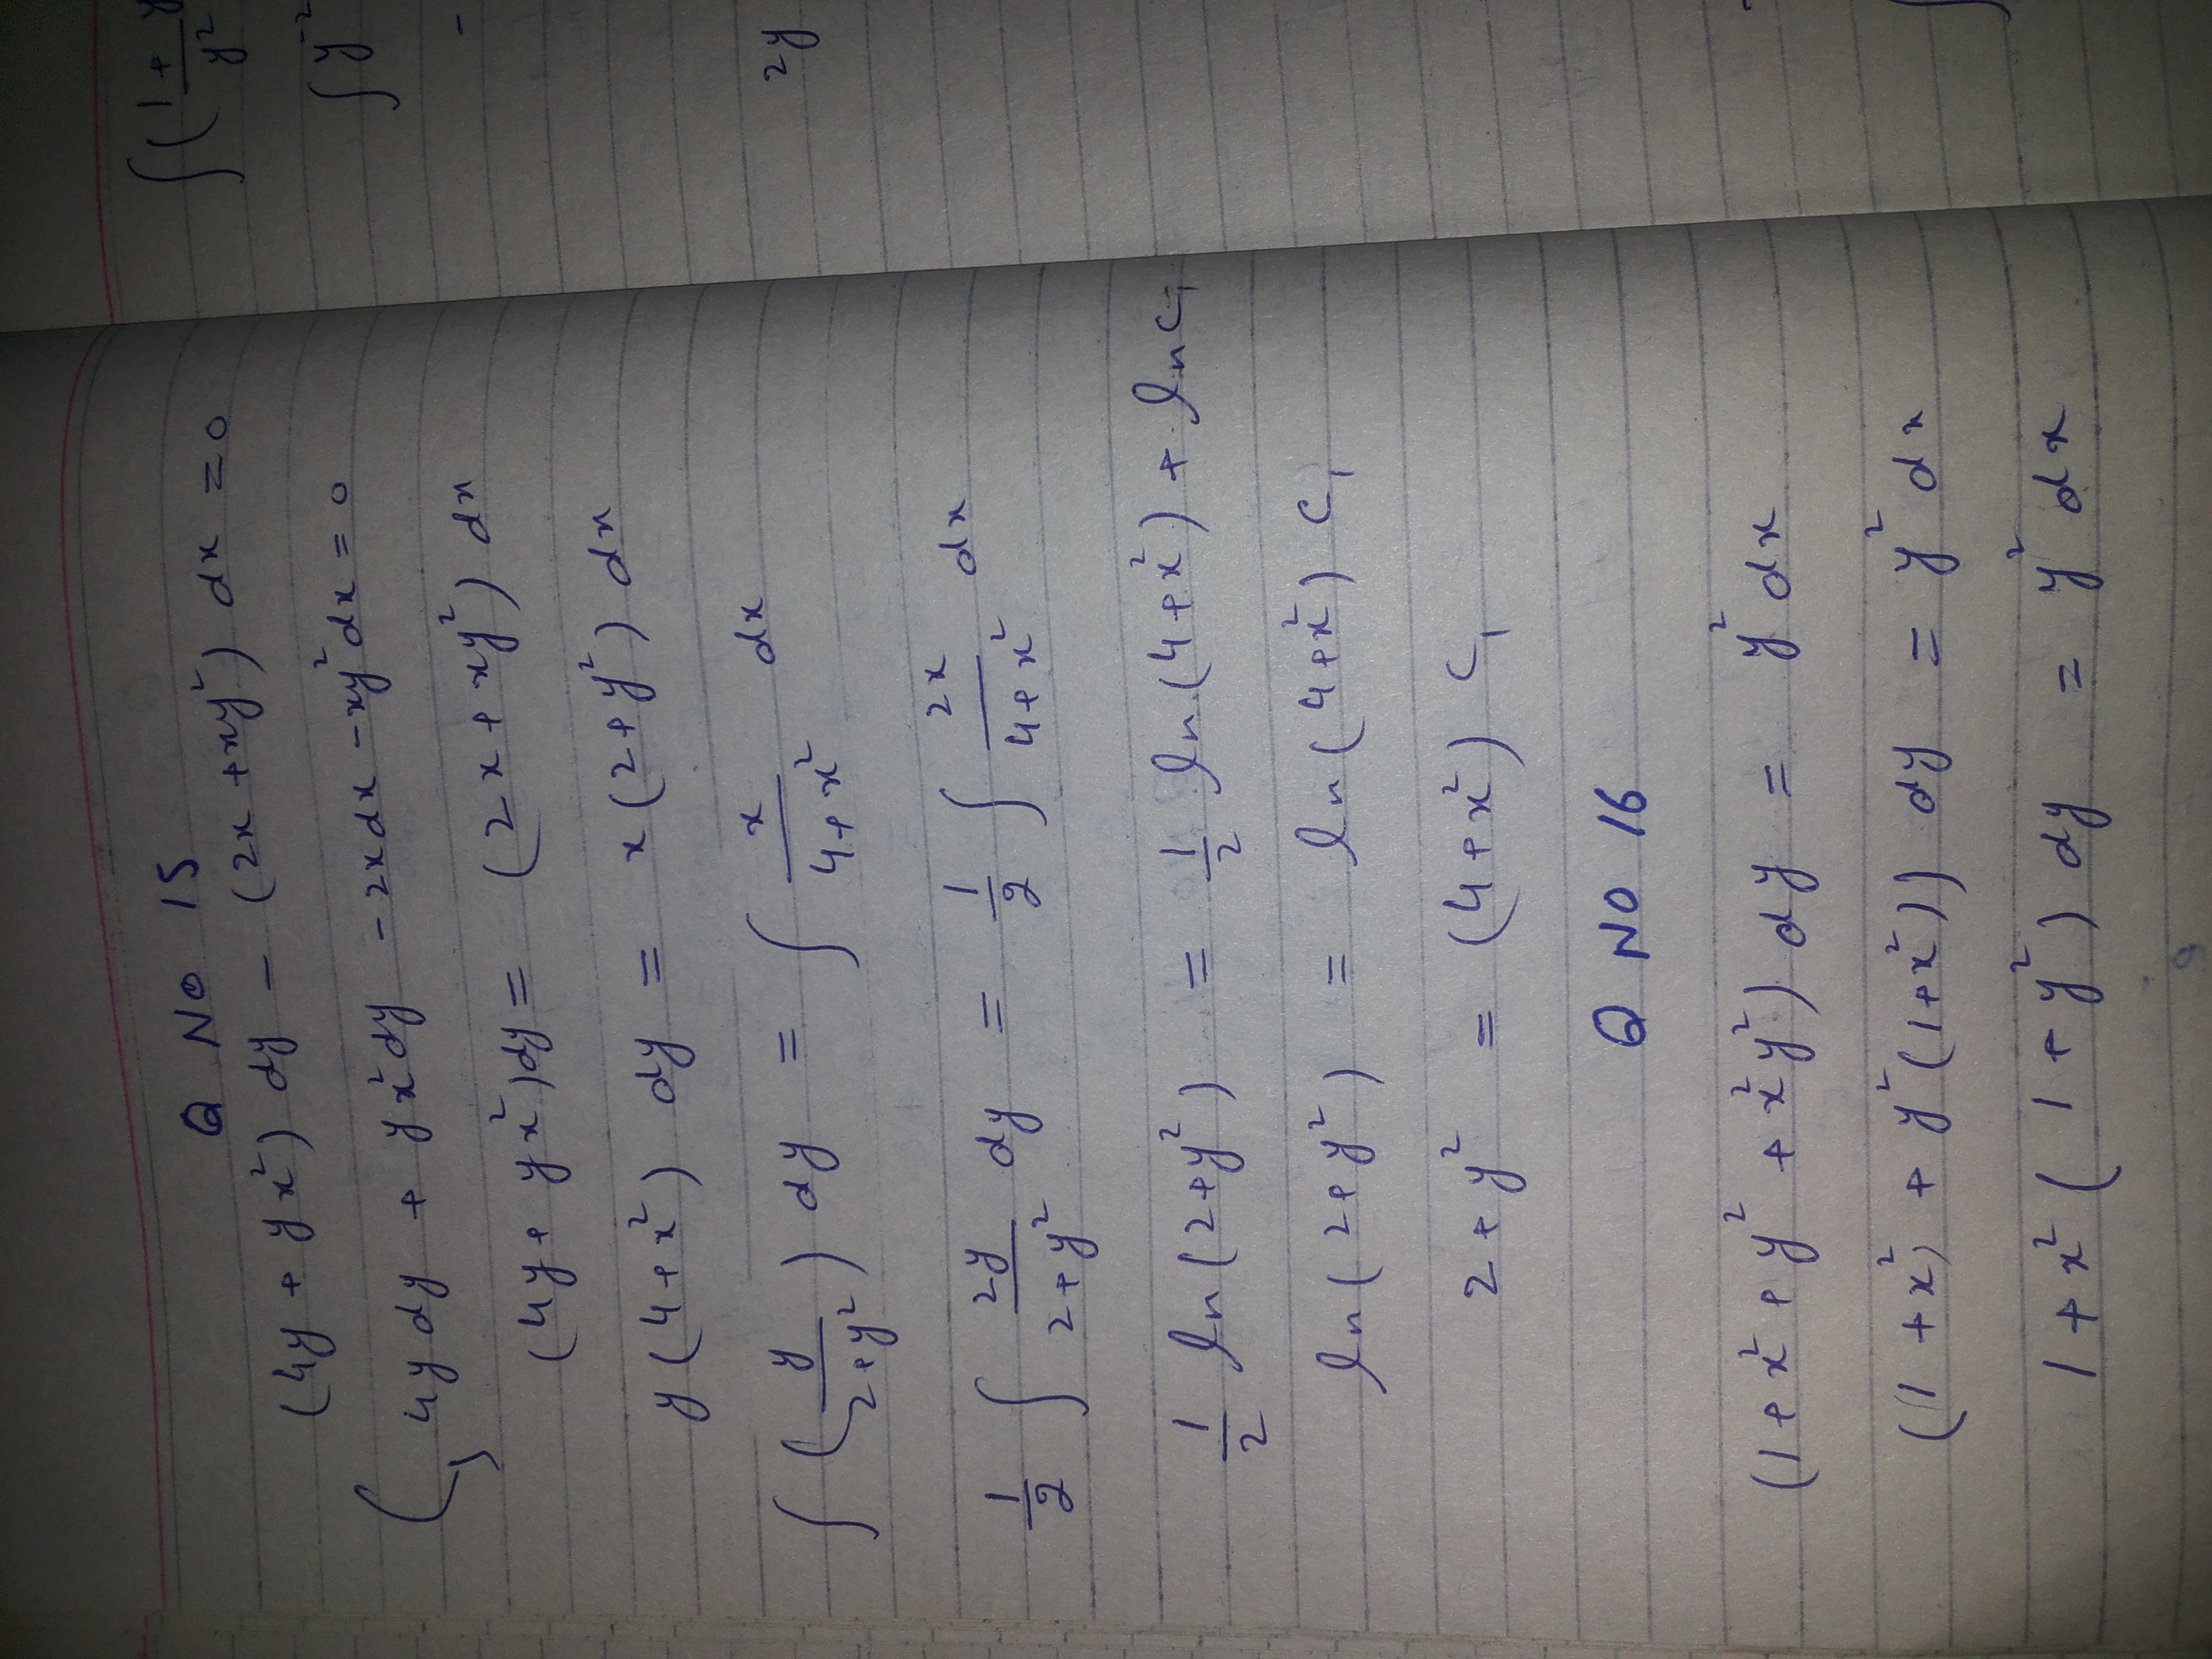 Q No 15
(4y + yx²) dy - (2x + xy²) dx = 0
4y dy + yx² dy - 2x dx - xy² dx = 0
(4y + yx²) dy = (2x + xy²) dx
y(4+x²) dy = x(2+y²) dx
∫ (y/(2+y²)) dy = ∫ x/(4+x²) dx
1/2 ∫ 2y/(2+y²) dy = 1/2 ∫ 2x/(4+x²) dx
1/2 ln(2+y²) = 1/2 ln(4+x²) + ln c₁
ln(2+y²) = ln(4+x²) c₁
2+y² = (4+x²) c₁
Q NO 16
(1+x²+y²+x²y²) dy = y² dx
(1+x² + y²(1+x²)) dy = y² dx
1+x² (1+y²) dy = y² dx
∫(1+y
y²
∫y⁻²
-
2y